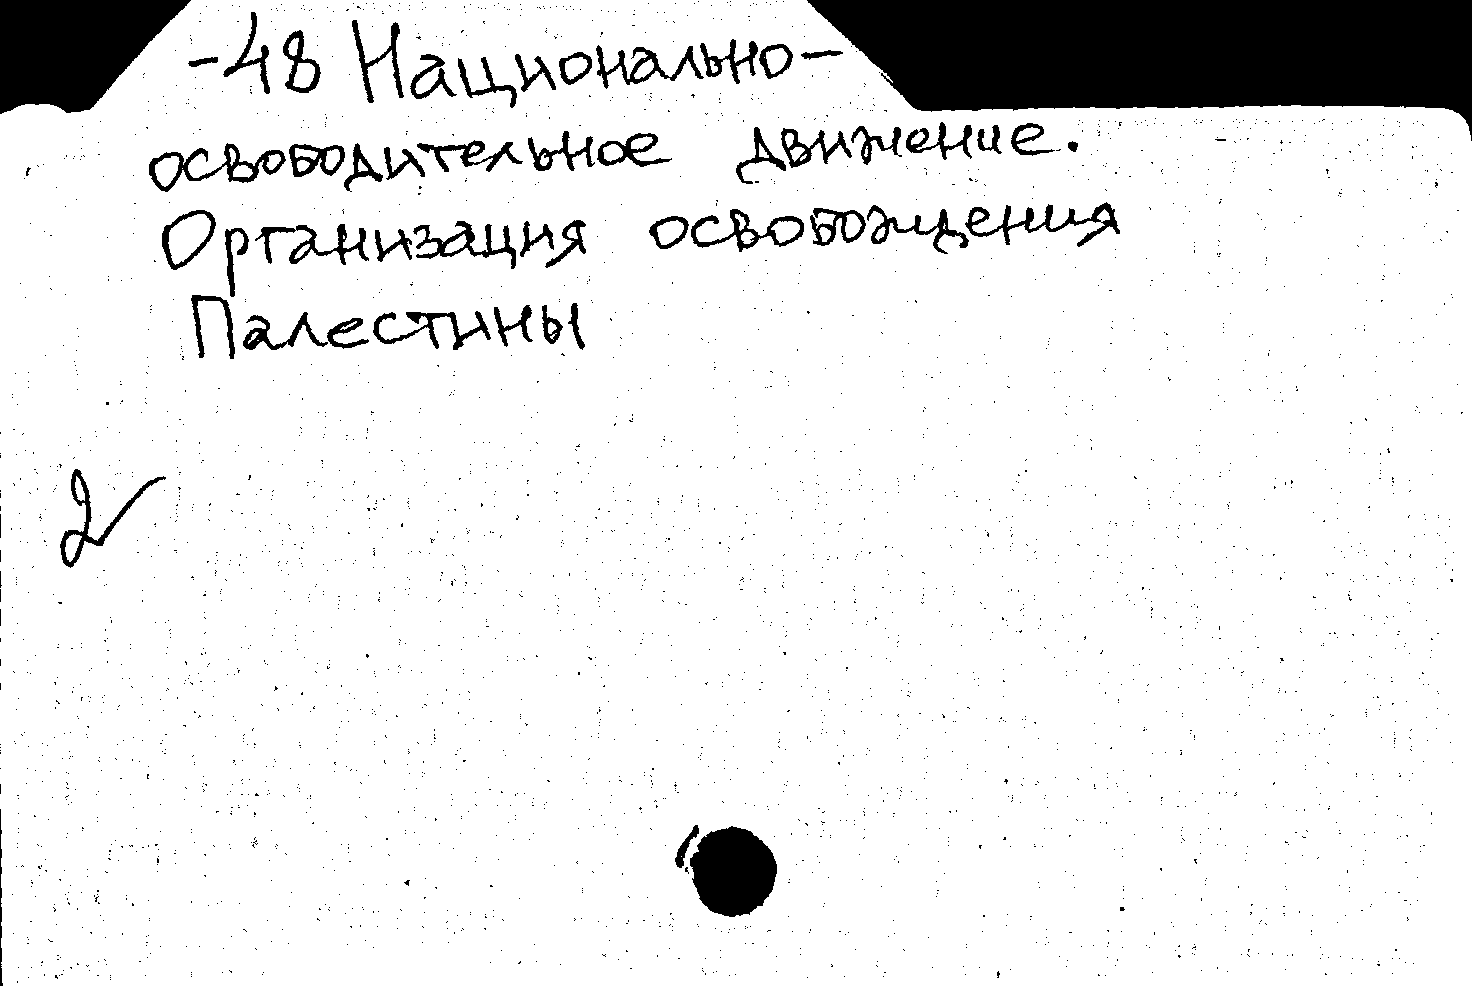 -48 Национально-
освободительное движение.
Организация освобождения
Палестины
2✓